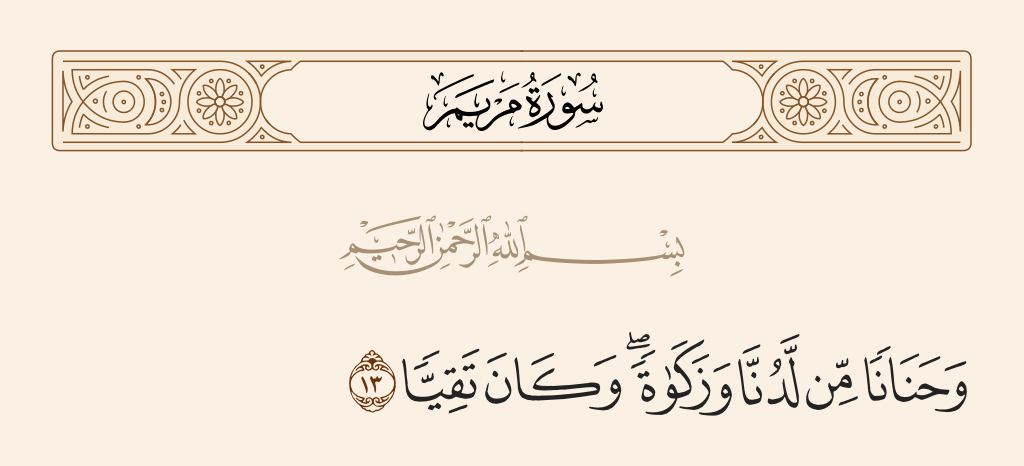 سُورَةُ مَرْيَمَ
بِسْمِ ٱللَّهِ ٱلرَّحْمَٰنِ ٱلرَّحِيمِ
وَحَنَانًا مِّن لَّدُنَّا وَزَكَوٰةً ۖ وَكَانَ تَقِيًّا ١٣